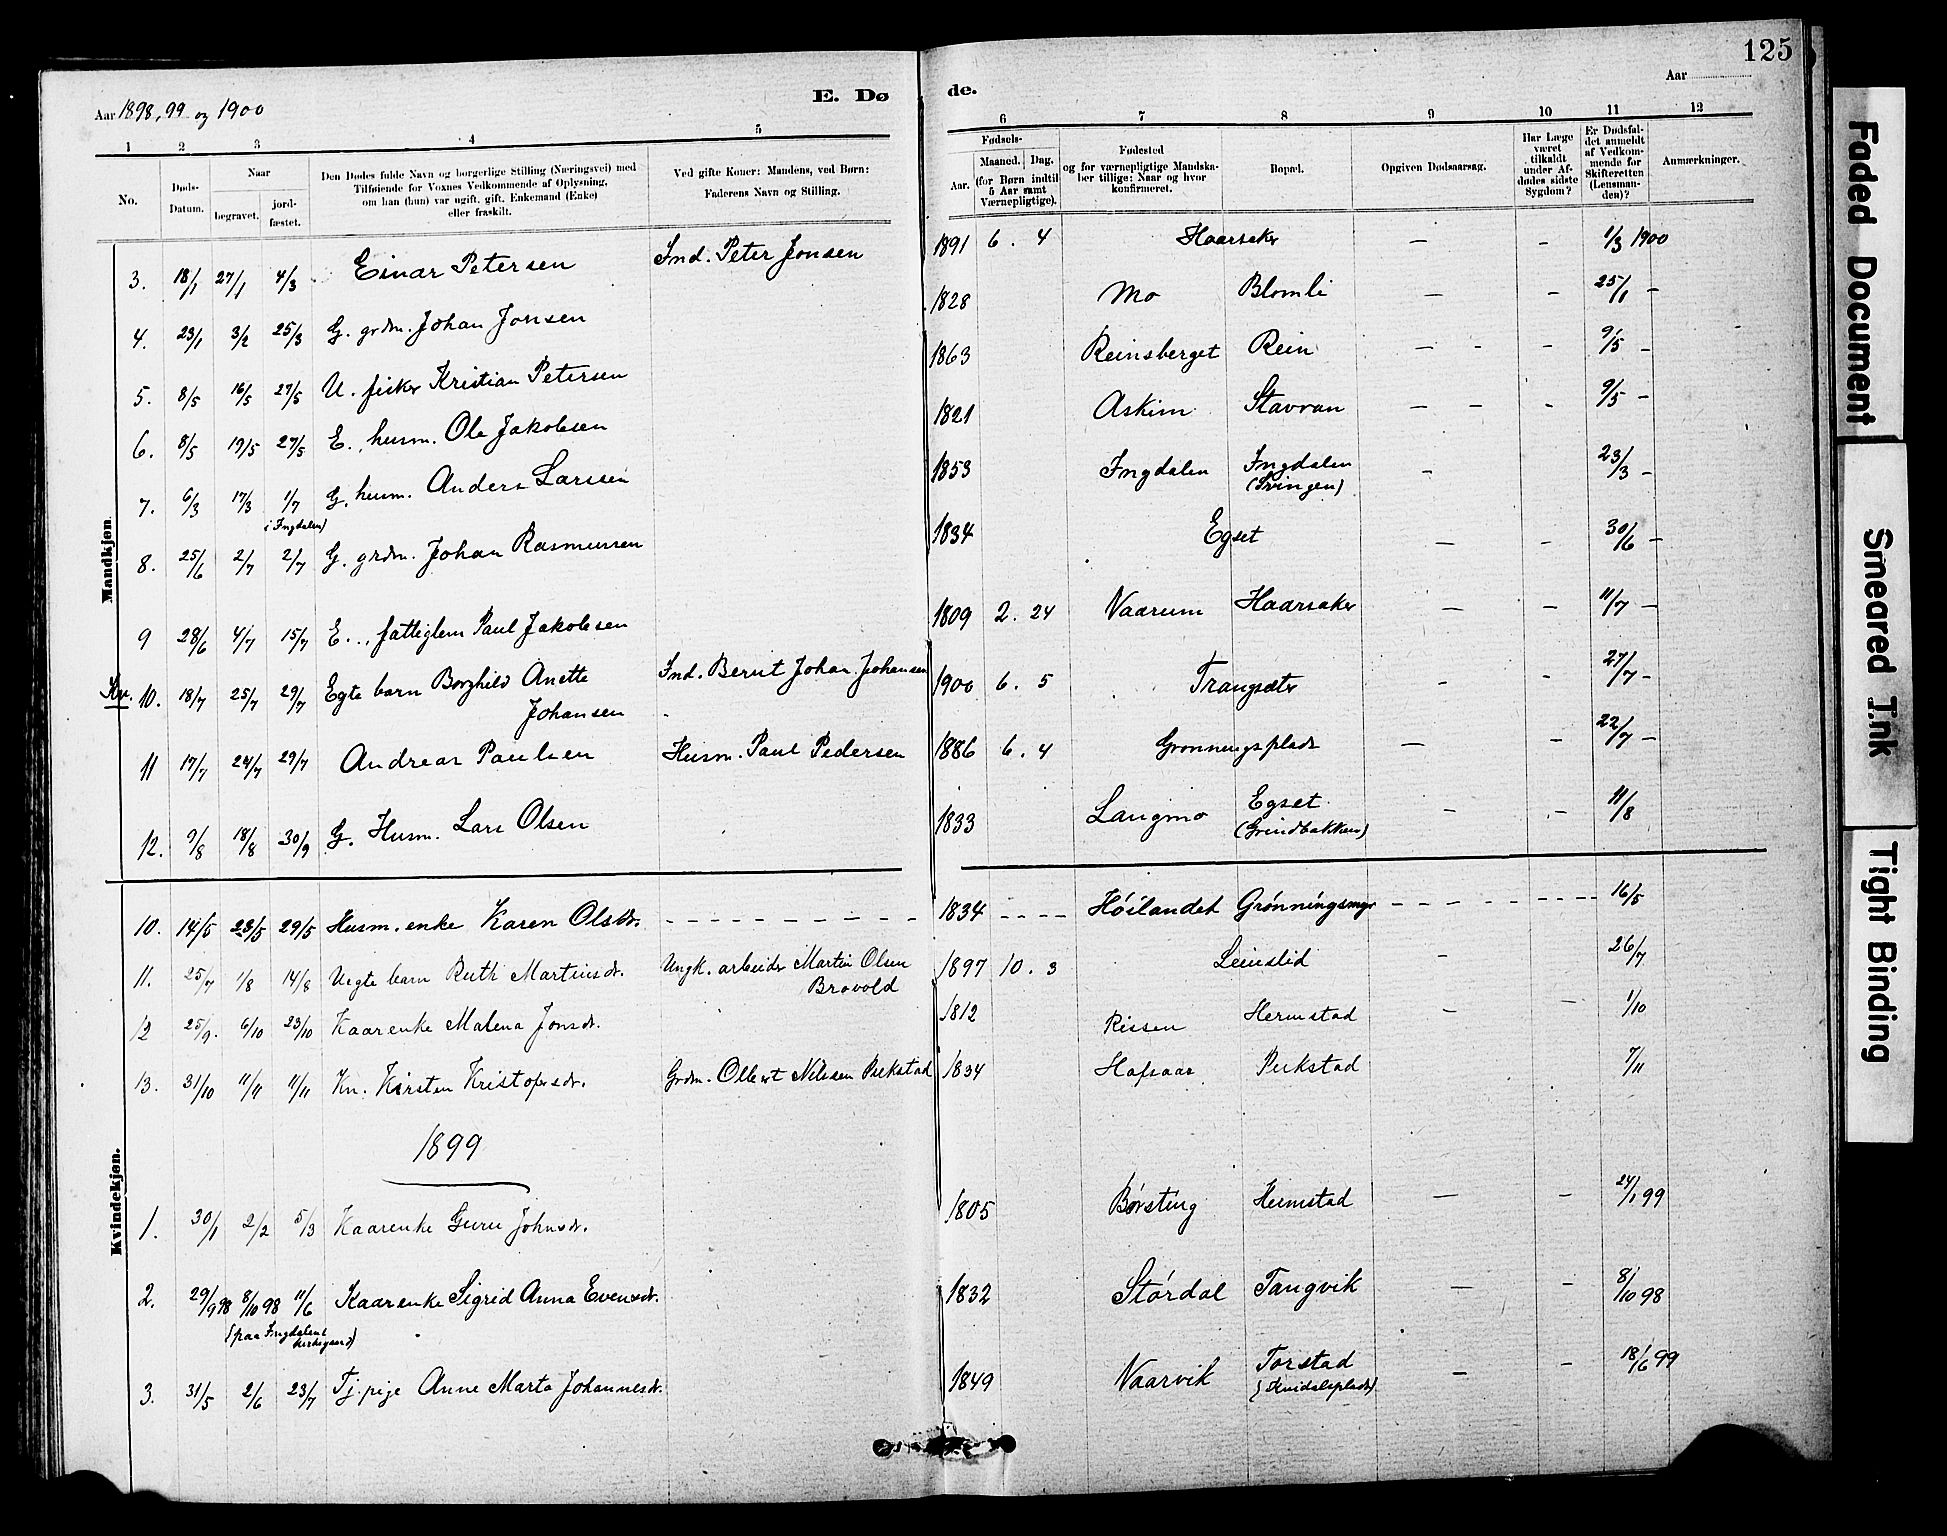 125
Aar 1898, 99 og 1900
E. Dø de.
Aar
1 2 3 4 5 6 7 8 9 10 11 12
No.
Døds-Datum.
Naar
begravet.
jord-fæstet.
Den Dødes fulde Navn og borgerlige Stilling (Næringsvei) med
Tilføiende for Voxnes Vedkommende af Oplysning,
om han (hun) var ugift, gift, Enkemand (Enke)
eller fraskilt.
Ved gifte Koner: Mandens, ved Børn:
Faderens Navn og Stilling.
Fødsels-
Aar. Maaned. Dag.
(for Børn indtil
5 Aar samt
Værnepligtige).
Fødested
og for værnepligtige Mandska-
ber tillige: Naar og hvor
konfirmeret.
Bopæl.
Opgiven Dødsaarsag.
Har Læge
været
tilkaldt
under Af-
dødes sidste
Sygdom?
Er Dødsfal-
det anmeldt
af Vedkom-
mende for
Skifteretten
(Lensman-
den)?
Anmærkninger.
Mandkjøn.
3. 18/1 27/1 4/3 Einar Petersen Ind. Peter Jonsen 1891 6. 4 Haarsaker – – 1/3 1900
4. 23/1 3/2 25/3 G. grdm. Johan Jonsen 1828 Mo Blomli – – 25/1 –
5. 8/5 16/5 27/5 U. fisker Kristian Petersen 1863 Reinsberget Rein – - – 9/5 –
6. 8/5 19/5 27/5 E., husm. Ole Jakobsen 1821 Askim Stavran – - – 9/5 –
7. 6/3 17/3 1/7 G. husm. Anders Larsen 1853 Ingdalen Ingdalen – 23/3 –
(i Ingdalen) (Svingen)
8. 25/6 2/7 2/7 G. grdm. Johan Rasmussen 1834 Egset – – 30/6 –
9 28/6 4/7 15/7 E.., fattiglem Paul Jakobsen 1809 2. 24 Vaarum Haarsaker – – 11/7 –
Kv. 10. 18/7 25/7 29/7 Egte barn Borghild Anette Ind. Bernt Johan Johansen 1900 6. 5 Trangsæter – – 27/7 –
Johansen
11 17/7 24/7 29/7 Andreas Paulsen Husm. Paul Pedersen 1886 6. 4 Grønningsplads – – 22/7 –
12. 9/8 18/8 30/9 G. Husm. Lars Olsen 1833 Langmo Egset – – 11/8
(Grindbakken)
Kvindekjøn.
10. 14/5 23/5 29/5 Husm. enke Karen Olsdr. 1834 Høilandet Grønningsmyr 16/5
11. 25/7 1/8 14/8 Uegte barn Ruth Martinsdr. Ungk. arbeider Martin Olsen 1897 10. 3 Leinslid – 26/7
Brovold
12 25/9. 6/10 23/10 Kaarenke Malena Jonsdr. 1812 Rissen Hermstad – – 1/10
13. 31/10 11/11 11/11 Kn. Kirsten Kristofersdr. Grdm. Olbert Nilssen Pukstad 1834 Hafsaas Pukstad 7/11
1899
1. 30/1 2/2 5/3 Kaarenke Guru Johnsdr. 1805 Børsting Heimstad – – 24/1 99
2. 29/9 98 8/10 98 11/6 Kaarenke Sigrid Anna Evensdr. 1832 Størdal Tangvik – – 8/10 98
(paa Ingdalens
kirkegaard)
3. 31/5 2/6 23/7 Tj. pige Anne Marta Johannesdr. 1849 Vaarvik Torstad – – 18/6 99
Faded Document
Smeared Ink
Tight Binding